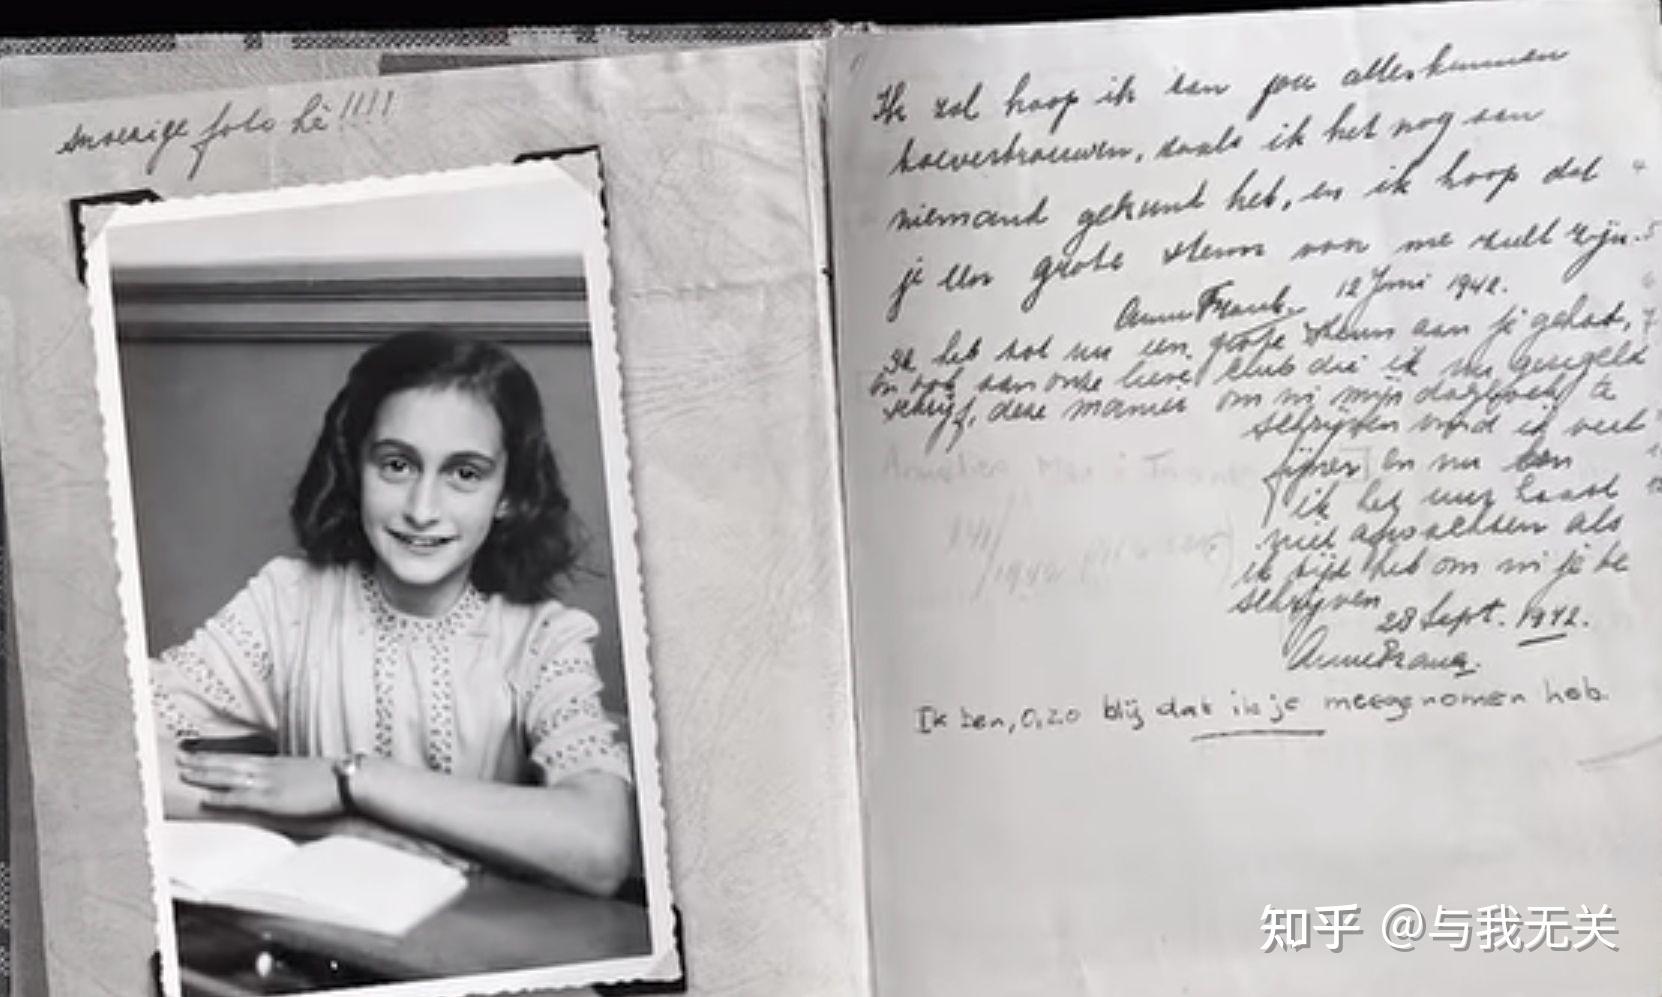 snoezige foto hè!!!!
Ik zal hoop ik aan jou alles kunnen
toevertrouwen, zoals ik het nog aan
niemand gekund heb, en ik hoop dat
je een grote steun voor me zult zijn.
Anne Frank. 12 Juni 1942.
Ik heb tot nu een grote steun aan je gehad,
en ook aan onze lieve club die ik nu geregeld
schrijf, deze manier om in mijn dagboek te
schrijven vind ik veel
fijner en nu kan
ik het uur haast
niet afwachten als
ik tijd heb om in je te
schrijven
28 Sept. 1942.
Anne Frank.
Ik ben, O, zo blij dat ik je meegenomen heb.
知乎 @与我无关